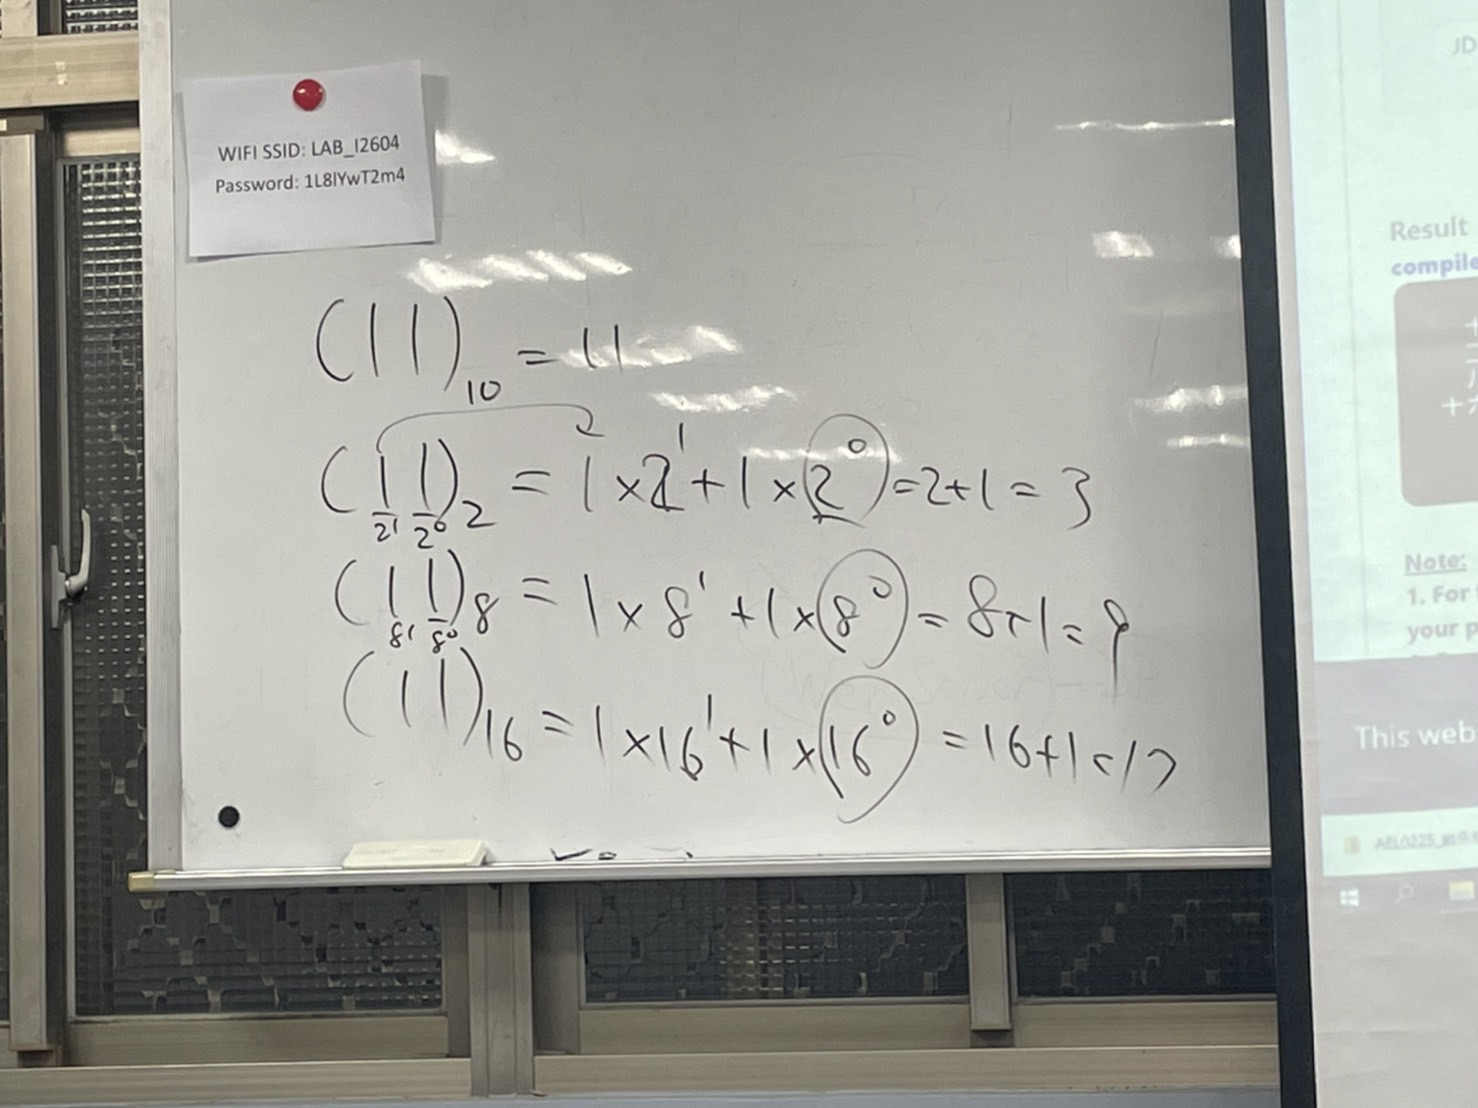 WIFI SSID: LAB_I2604
Password: 1L8lYwT2m4
(11)₁₀ = 11
(11)₂ = 1×2¹+1×2⁰=2+1=3
2¹ 2⁰
(11)₈ = 1×8¹+1×8⁰=8+1=9
8¹ 8⁰
(11)₁₆ = 1×16¹+1×16⁰=16+1=17
JD
Result
compile
Note:
1. For
your p
This web